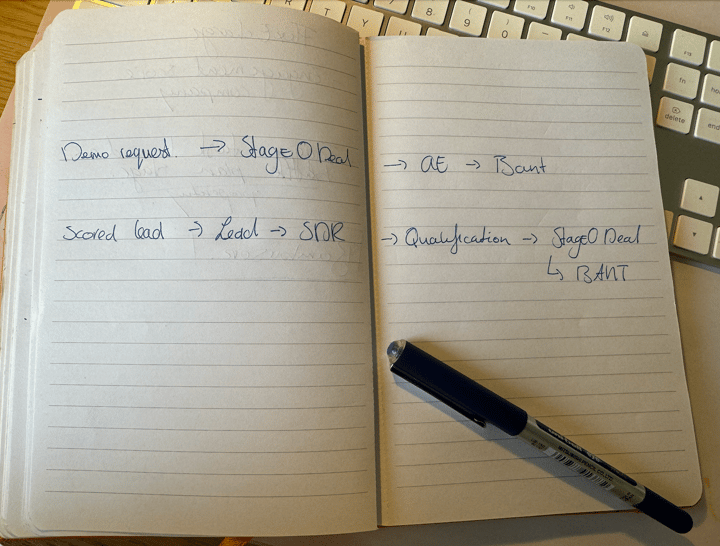 Demo request. → Stage 0 Deal → AE → Bant
Scored lead → Lead → SDR → Qualification → Stage 0 Deal
↳ BANT
delete
end
fn
F13
7
8
9
0
T
Y